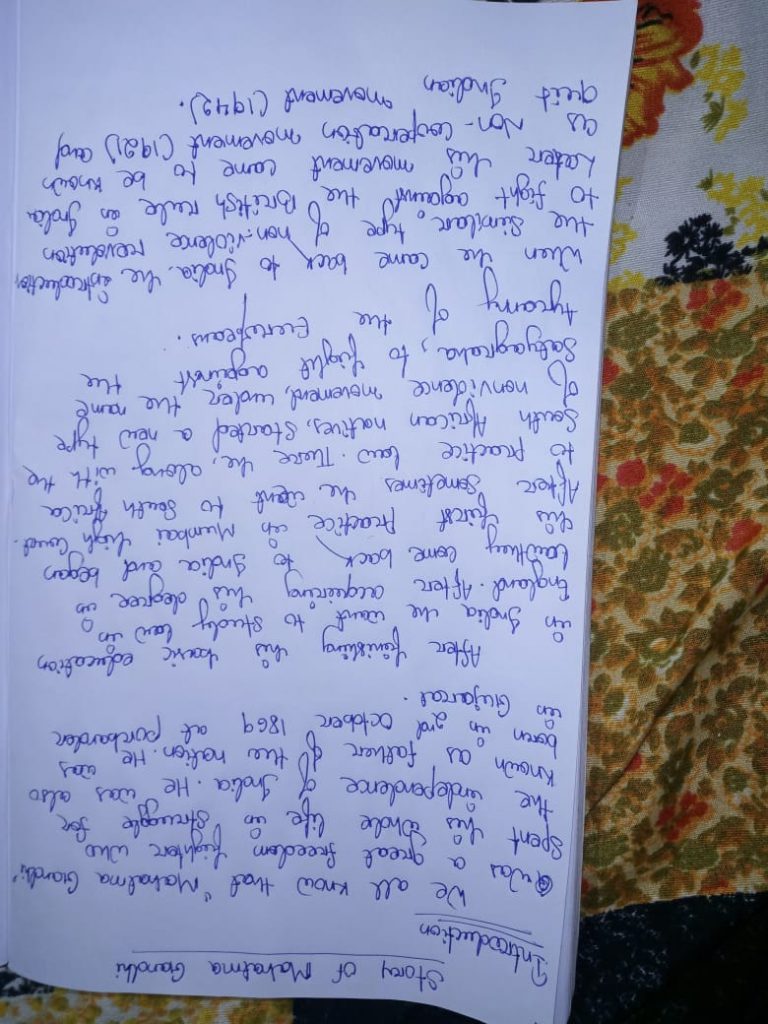 Story of Mahatma Gandhi
Introduction
We all know that "Mahatma Gandhi"
was a great freedom fighter who
spent his whole life in struggle for
the independence of India. He was also
known as father of the nation. He was
born in 2nd October 1869 at porbander
in Gujarat.
After finishing his basic education
in India he want to study law in
England. After acquiring his degree in
law they come back to India and began
his first practice in Mumbai high Court.
After sometimes he went to South Africa
to practice law. There he, along with the
South African natives, Started a new type
of nonvidence movement, under the name
Satyagraha, to fight against the
tyranny of the Europeans.
When he came back to India. he introduction
the similar type of non-violence revolution
to fight against the British rule in India
Later his movement came to be known
as Non-cooperation movement (1921) and
Quit Indian movement (1942).